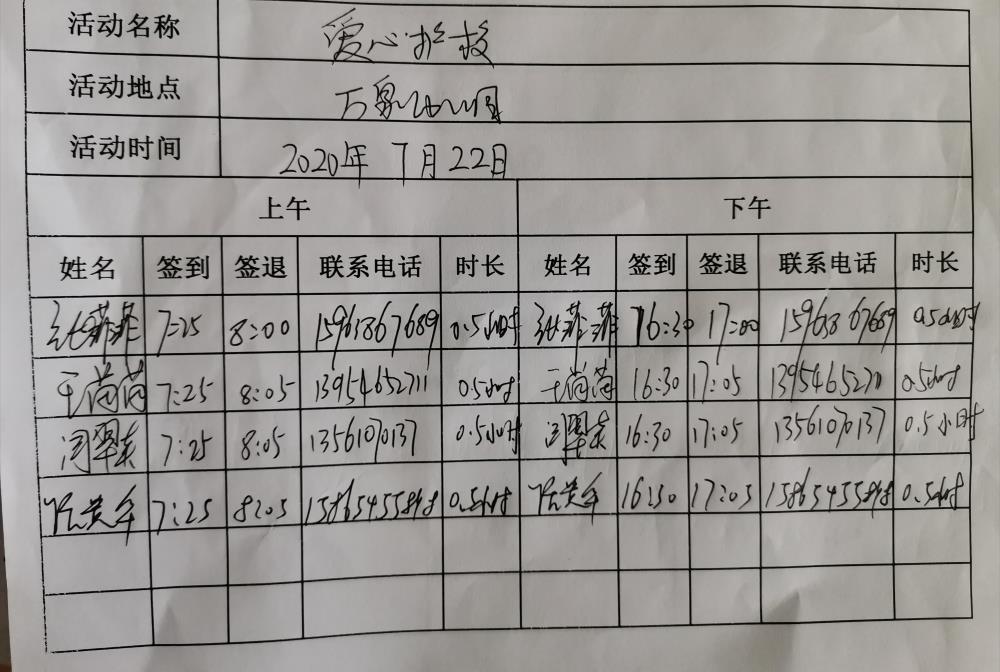 活动名称 爱心护校
活动地点
活动时间 2020年7月22日
上午 下午
姓名 签到 签退 联系电话 时长 姓名 签到 签退 联系电话 时长
张菲菲 7:25 8:00 15963867689 0.5小时 张菲菲 16:30 17:00 15963867689 0.5小时
7:25 8:05 13954652711 0.5小时 16:30 17:05 0.5小时
7:25 8:05 13561070137 0.5小时 16:30 17:05 13561070137 0.5小时
7:25 8:05 0.5小时 16:30 17:05 0.5小时